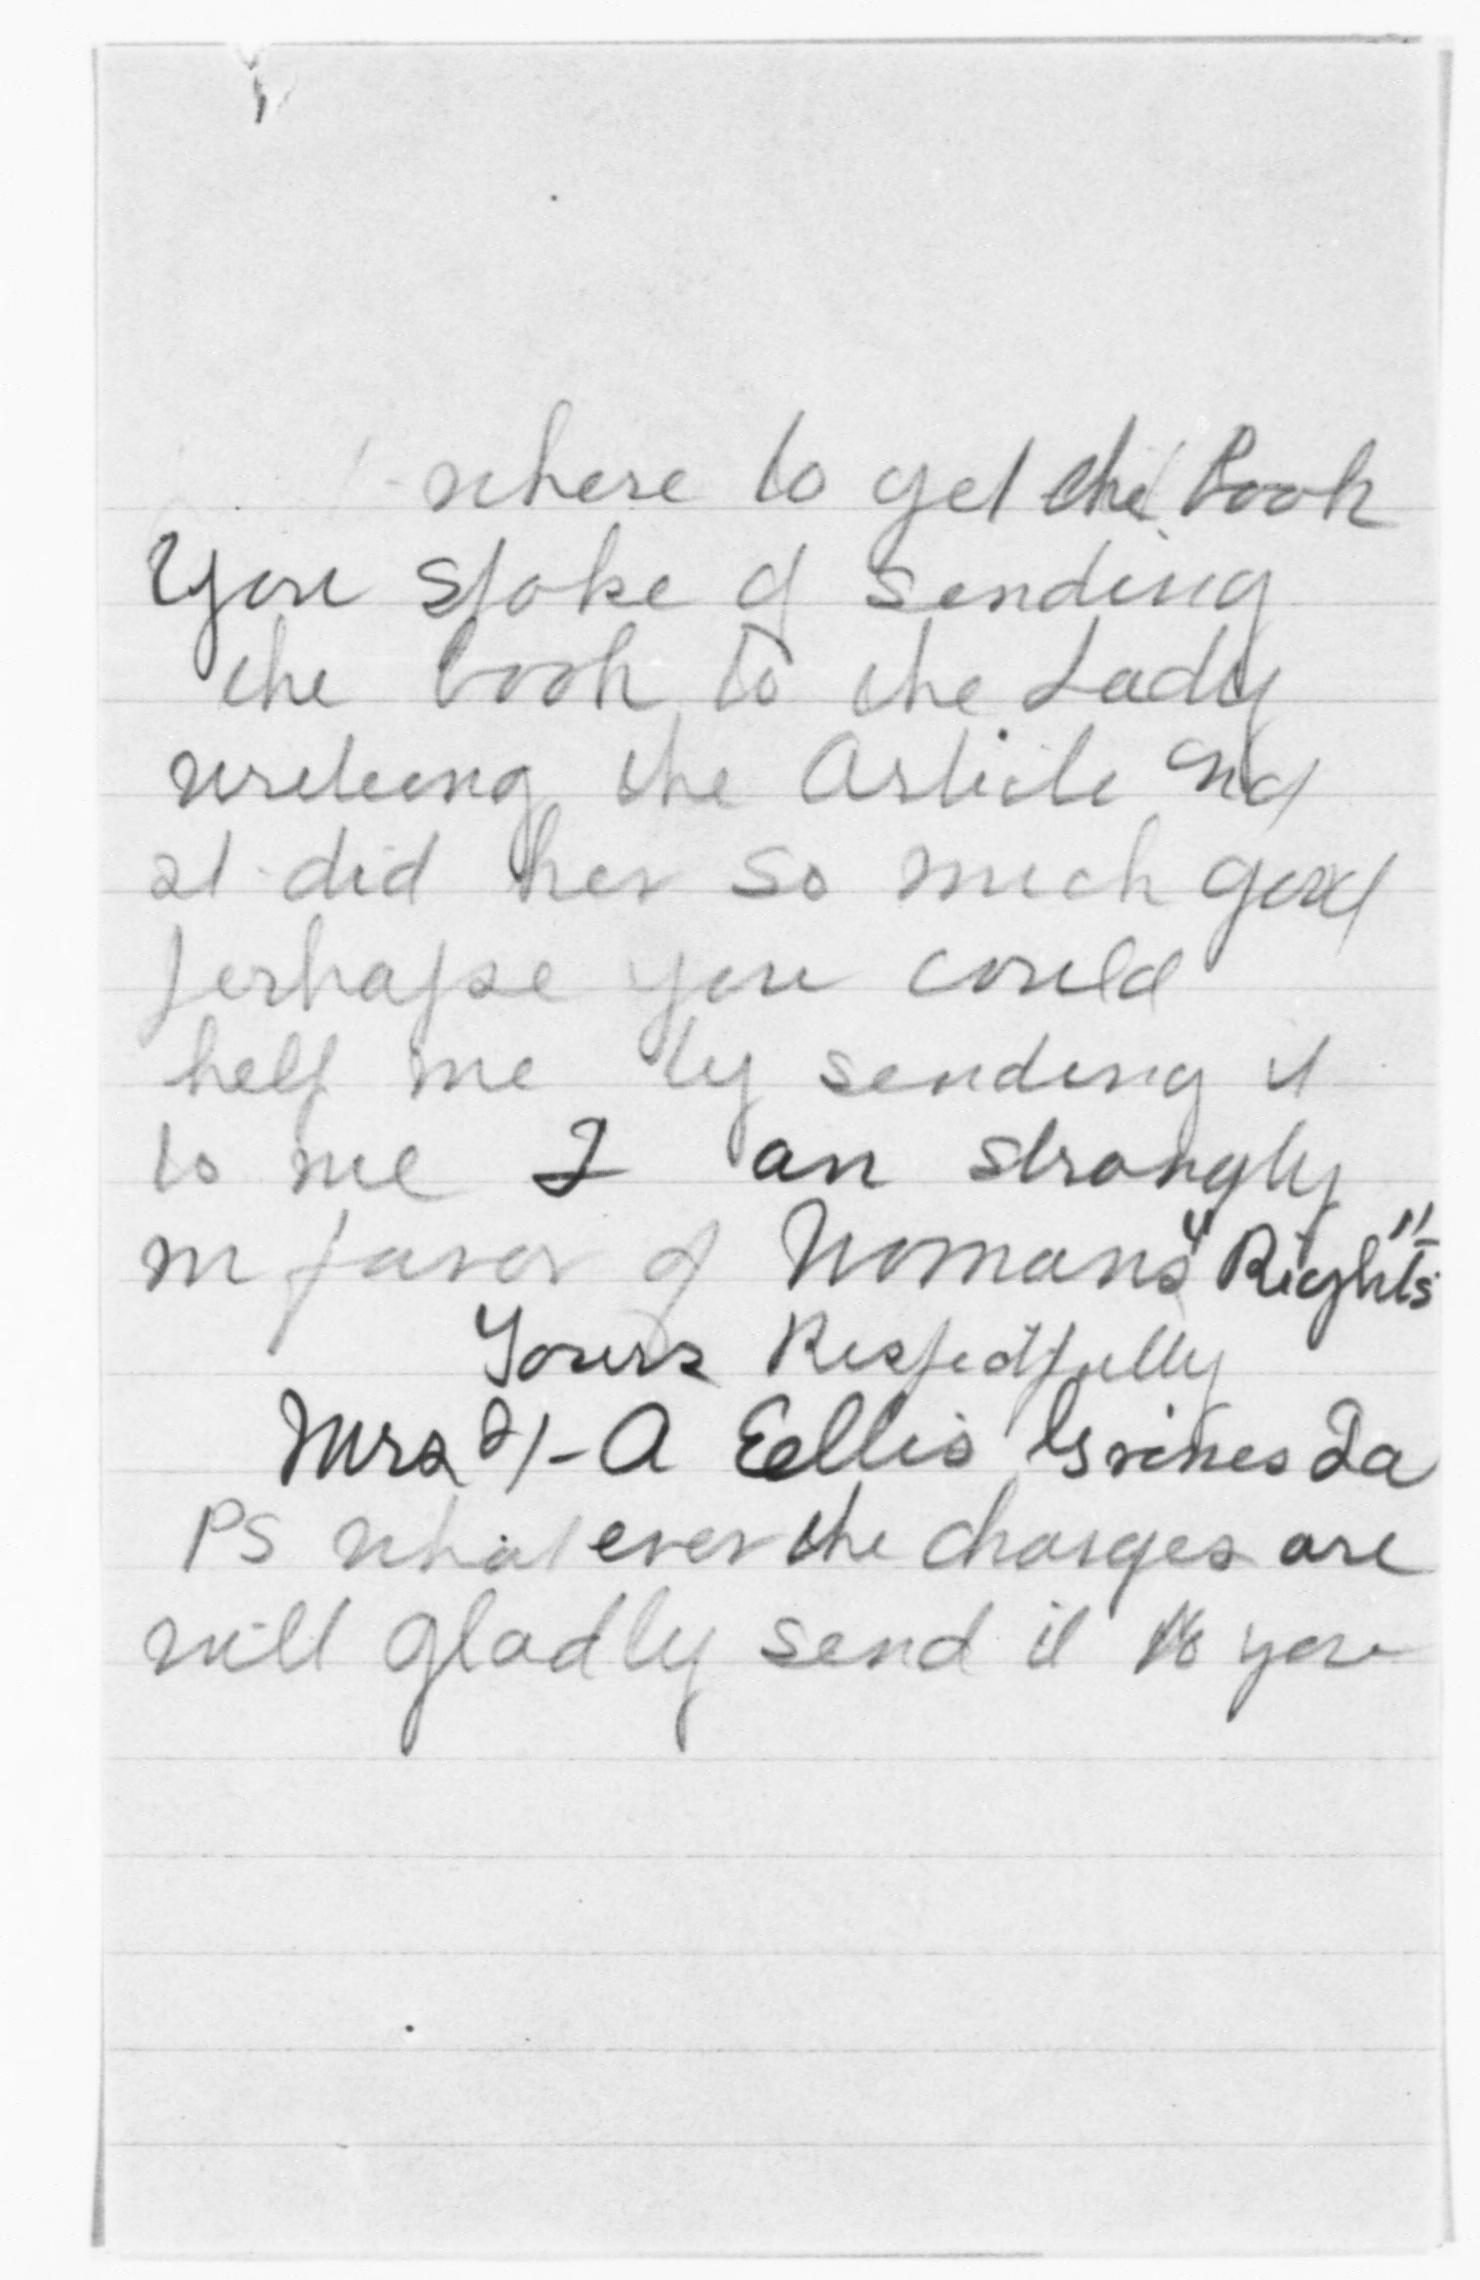 where to get the Book
You spoke of sending
the book to the Lady
writeing the Article and
it did her so much good
perhapse you could
help me by sending it
to me I am strongly
in favor of Womans "Rights"
Yours Respectfully
Mrs A Ellis Grimes Ia
PS whatever the charges are
will gladly send it to you